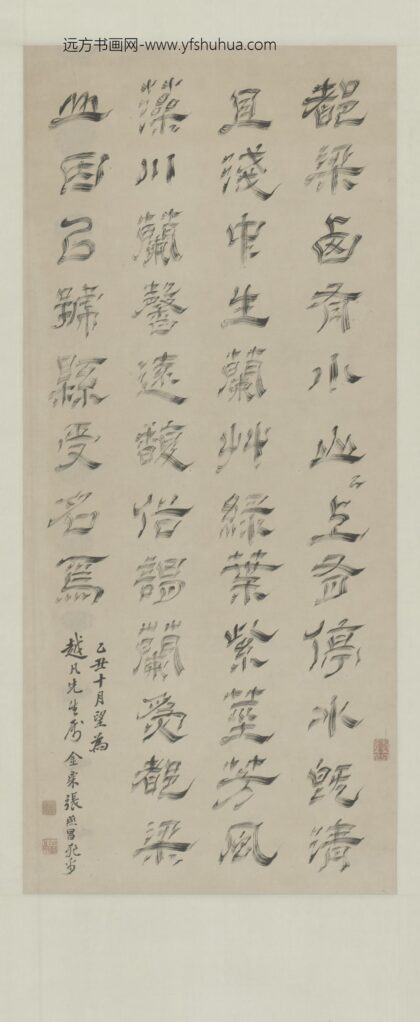 远方书画网-www.yfshuhua.com
都梁西有小山〻上有停水既清
且淺中生蘭艸綠葉紫莖芳風
藻川蘭馨遠馥俗謂蘭爲都梁
山因㠯號縣受名焉
乙丑十月望為
越凡先生属 金粟張燕昌飛白